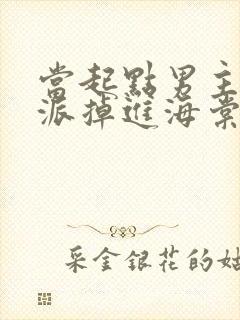 當起點男主
派掉進海棠
采金銀花的姑